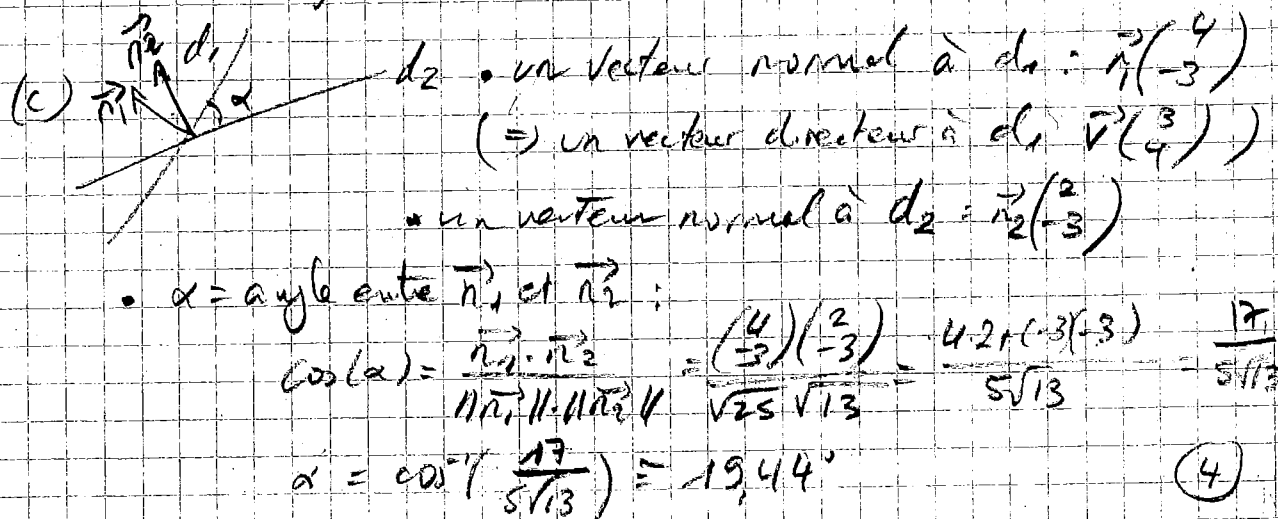 (c) n⃗₁ n⃗₂ d₁ α d₂ • un vecteur normal à d₁ : n⃗₁(4 -3)
(⇒ un vecteur directeur à d₁ v⃗(3 4))
• un vecteur normal à d₂ : n⃗₂(2 -3)
• α = angle entre n⃗₁ et n⃗₂ :
cos(α) = n⃗₁·n⃗₂ / ||n⃗₁||·||n⃗₂|| = (4 -3)(2 -3) / √25 √13 = 4·2+(-3)(-3) / 5√13 = 17 / 5√13
α = cos⁻¹(17 / 5√13) = 19,44° (4)